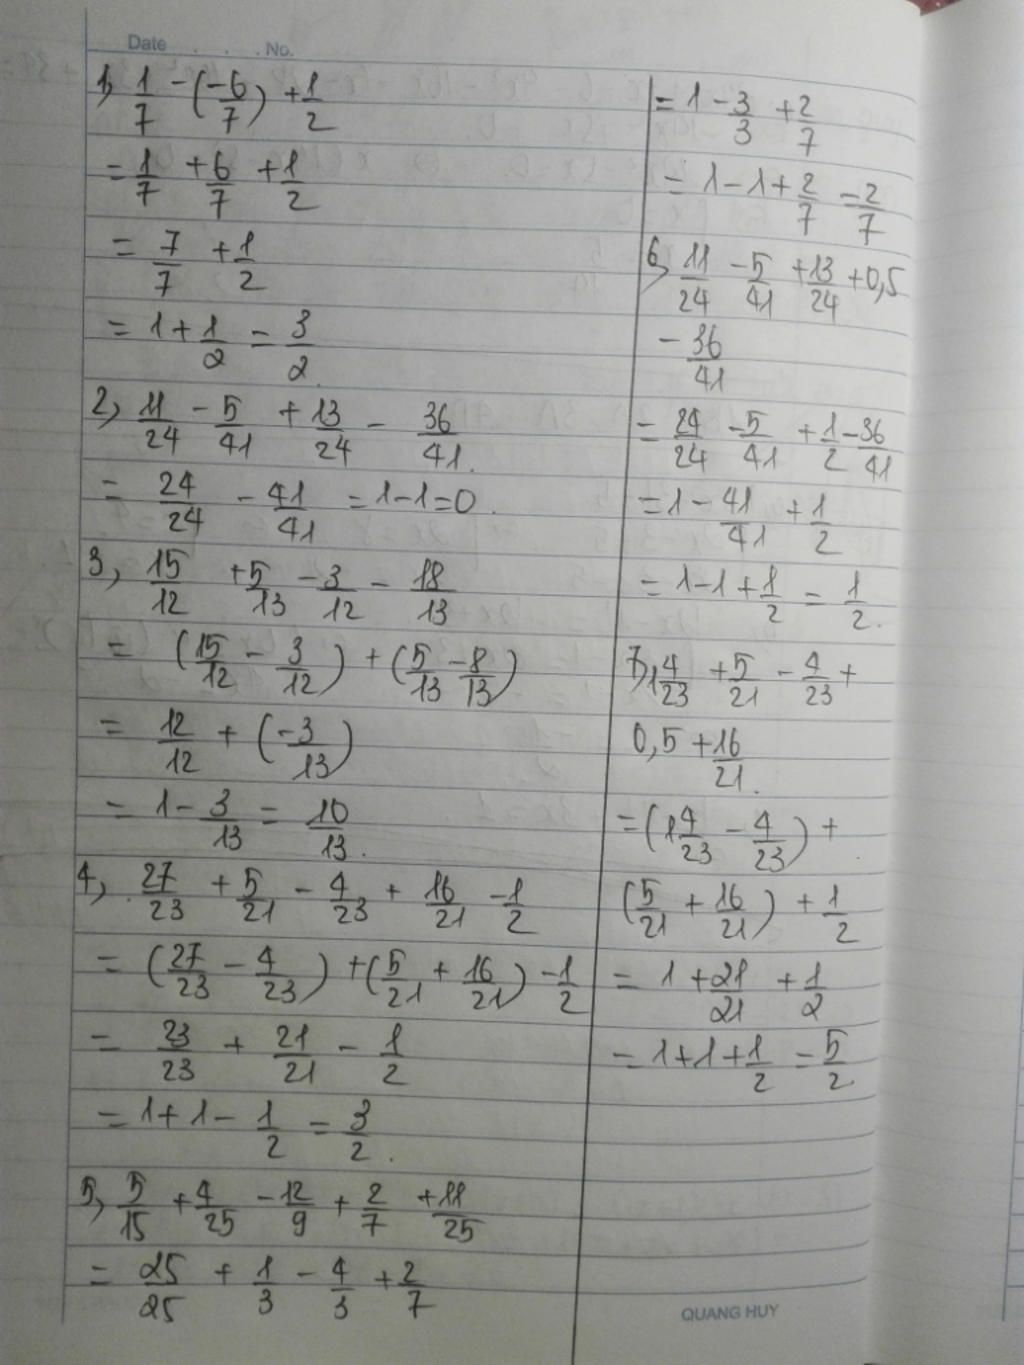 Date . . . No.
1, 1/7 - (-6/7) + 1/2
= 1/7 + 6/7 + 1/2
= 7/7 + 1/2
= 1 + 1/2 = 3/2.
2, 11/24 - 5/41 + 13/24 - 36/41.
= 24/24 - 41/41 = 1 - 1 = 0.
3, 15/12 + 5/13 - 3/12 - 18/13
= (15/12 - 3/12) + (5/13 - 8/13)
= 12/12 + (-3/13)
= 1 - 3/13 = 10/13.
4, 27/23 + 5/21 - 4/23 + 16/21 - 1/2
= (27/23 - 4/23) + (5/21 + 16/21) - 1/2
= 23/23 + 21/21 - 1/2
= 1 + 1 - 1/2 = 3/2.
5, 5/15 + 4/25 - 12/9 + 2/7 + 11/25
= 25/25 + 1/3 - 4/3 + 2/7
= 1 - 3/3 + 2/7
= 1 - 1 + 2/7 = 2/7
6, 11/24 - 5/41 + 13/24 + 0,5
- 36/41
= 24/24 - 5/41 + 1/2 - 36/41
= 1 - 41/41 + 1/2
= 1 - 1 + 1/2 = 1/2.
7, 1 4/23 + 5/21 - 4/23 +
0,5 + 16/21.
= (1 4/23 - 4/23) +
(5/21 + 16/21) + 1/2
= 1 + 21/21 + 1/2
= 1 + 1 + 1/2 = 5/2
QUANG HUY